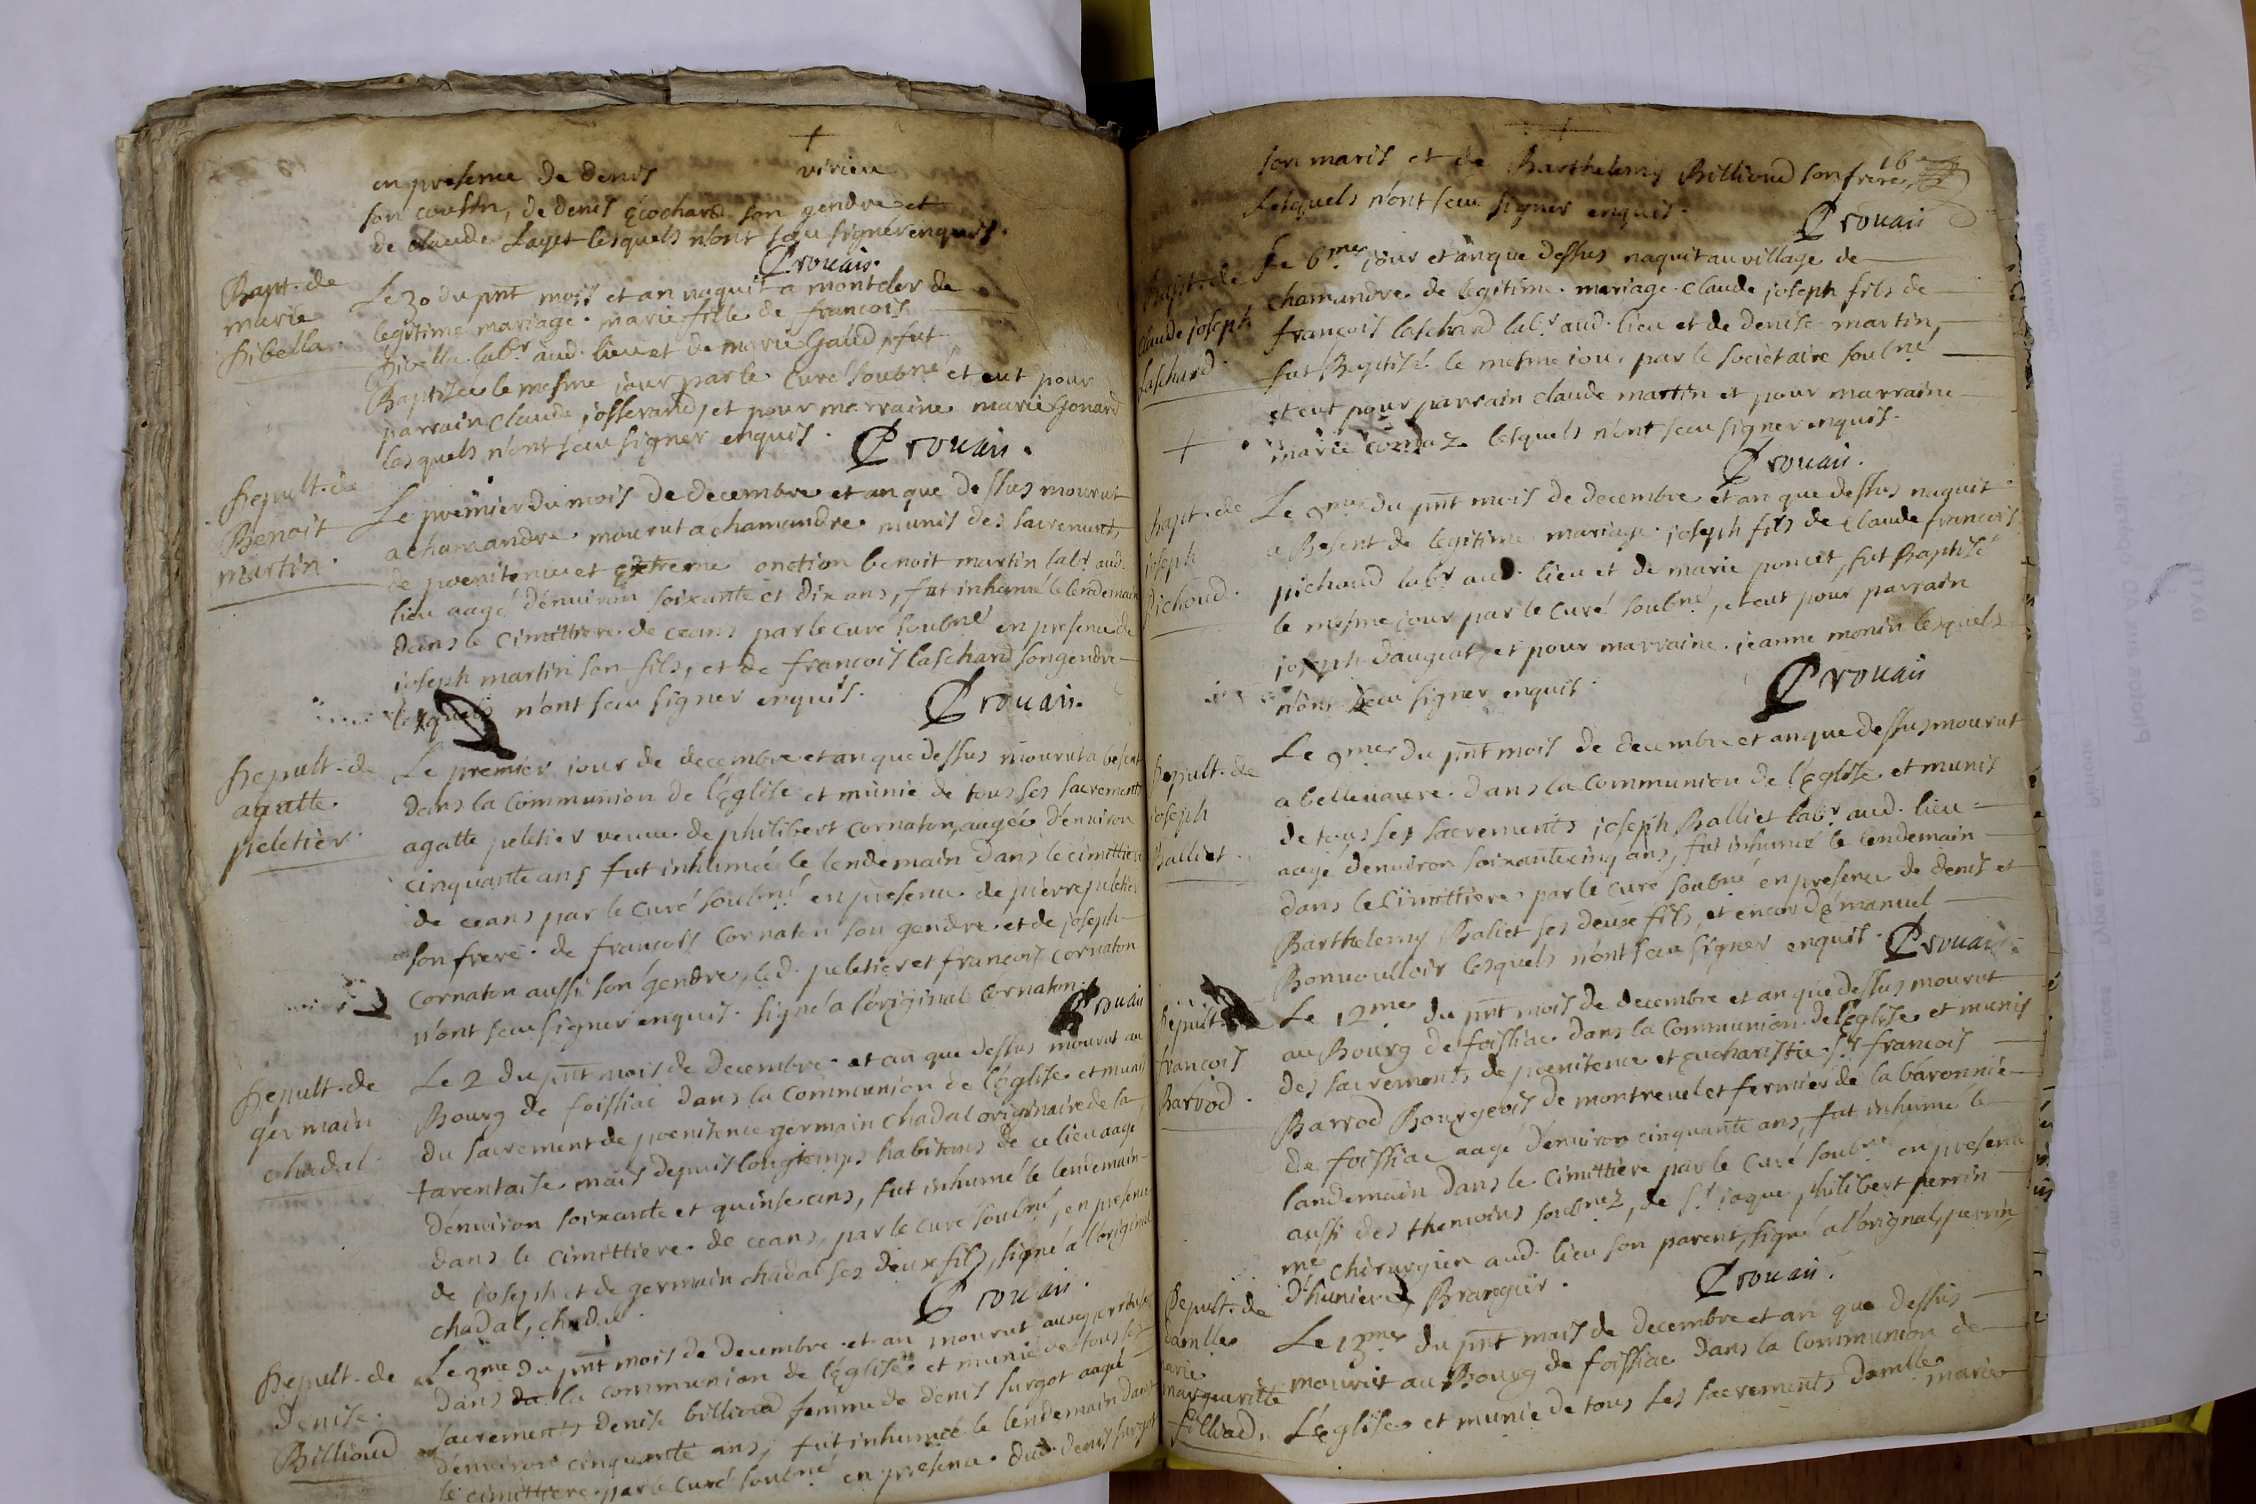 en presence de denis virieu
son cousin, de denis Cochard son gendre et
de claude Layet lesquels n'ont scu signer enquis.
Crouais.
Bapt. de
marie
sibella.
Le 30 du pnt mois et an naquit a montcler de
legitime mariage. marie fille de francois
sibella labr. aud. lieu et de marie Gaud, fut
Baptisée le mesme jour par le curé soubné et eut pour
parrain Claude josserand, et pour marraine marie Gonard
lesquels n'ont scu signer enquis.
Crouais.
sepult. de
Benoit
martin.
Le premier du mois de decembre et an que dessus mourut
a chamandre mourut a chamandre munis des sacrements
de poenitence et extreme onction benoit martin labr. aud.
lieu aagé d'enuiron soixante et dix ans, fut inhumé le lendemain
dans le cimittiere de ceans par le curé soubné en presence de
joseph martin son fils, et de francois laschard son gendre
lesquels n'ont scu signer enquis.
Crouais.
sepult. de
agatte
peletier.
Le premier jour de decembre et an que dessus mourut a besent
dans la communion de l'Eglise et munie de tous ses sacrements
agatte peletier veuue de philibert cornaton, aagée d'enuiron
cinquante ans fut inhumée le lendemain dans le cimittiere
de ceans par le curé soubné en presence de pierre peletier
son frere. de francois Cornaton son gendre et de joseph
Cornaton aussi son gendre, led. peletier et francois cornaton
n'ont scu signer enquis. signé a l'original Cornaton.
Crouais
sepult. de
germain
chadal.
Le 2 du pnt mois de decembre et an que dessus mourut au
Bourg de foissiac dans la communion de l'Eglise et munis
du sacrement de poenitence germain chadal originaire de la
tarentaise mais depuis longtemps habitans de ce lieu aagé
d'enuiron soixante et quinse ans, fut inhumé le lendemain
dans le cimittiere de ceans, par le curé soubné, en presence
de joseph et de germain chadal ses deux fils, signé a l'original
chadal, chadal.
Crouais.
sepult. de
Denise
Billioud
Le 3me du pnt mois de decembre et an mourut
dans la communion de l'Eglise et munie de tous ses
sacrements denise billioud femme de denis surgot aagée
d'enuiron cinquante ans, fut inhumée le lendemain dans
le cimittiere par le curé soubné en presence dud. denis surgot
16e
son maris et de Barthelemy Billioud son frere,
Lesquels n'ont scu signer enquis.
Crouais
Bapt. de
Claude joseph
Laschard.
Le 6me jour et an que dessus naquit au village de
chamandre de legitime mariage Claude joseph fils de
francois laschard labr. aud. lieu et de denise martin,
fut Baptisé le mesme jour par le societaire soubné
et eut pour parrain claude martin et pour marraine
marie lesquels n'ont scu signer enquis.
Crouais.
bapt. de
joseph
pichoud.
Le 9me du pnt mois de decembre et an que dessus naquit
a Besent de legitime mariage joseph fils de Claude francois
pichoud labr. aud. lieu et de marie poncet, fut Baptisé
le mesme jour par le curé soubné, et eut pour parrain
joseph daugeat, et pour marraine jeanne monin lesquels
n'ont scu signer enquis.
Crouais
sepult. de
joseph
Balliet.
Le 9me du pnt mois de decembre et an que dessus mourut
a belleuaure dans la communion de l'Eglise et munis
de tous ses sacrements joseph Balliet labr. aud. lieu
aagé d'enuiron soixante cinq ans, fut inhumé le lendemain
dans le Cimittiere par le curé soubné en presence de denis et
Barthelemy Baliet ses deux fils, et encor d'Emanuel
Bonuoulloir lesquels n'ont scu signer enquis.
Crouais
sepult. de
francois
Barrod.
Le 12me du pnt mois de decembre et an que dessus mourut
au Bourg de foissiac dans la communion de l'Eglise et munis
des sacrements de poenitence et eucharistie sr. francois
Barrod Bourgeois de montreuel et fermier de la baronnie
de foissiac aagé d'enuiron cinquante ans, fut inhumé le
landemain dans le cimittiere par le curé soubné en presence
aussi des themoins soubnez, de sr. jaque philibert perrin
me. chirurgien aud. lieu son parent, signé a l'orignal, perrin,
d'huniere, Brangier.
Crouais.
Sepult. de
damlle
marie
marguerite
folliad.
Le 13me du pnt mois de decembre et an que dessus
mourut au Bourg de foissiac dans la communion de
L'eglise et munie de tous les sacrements damlle marie